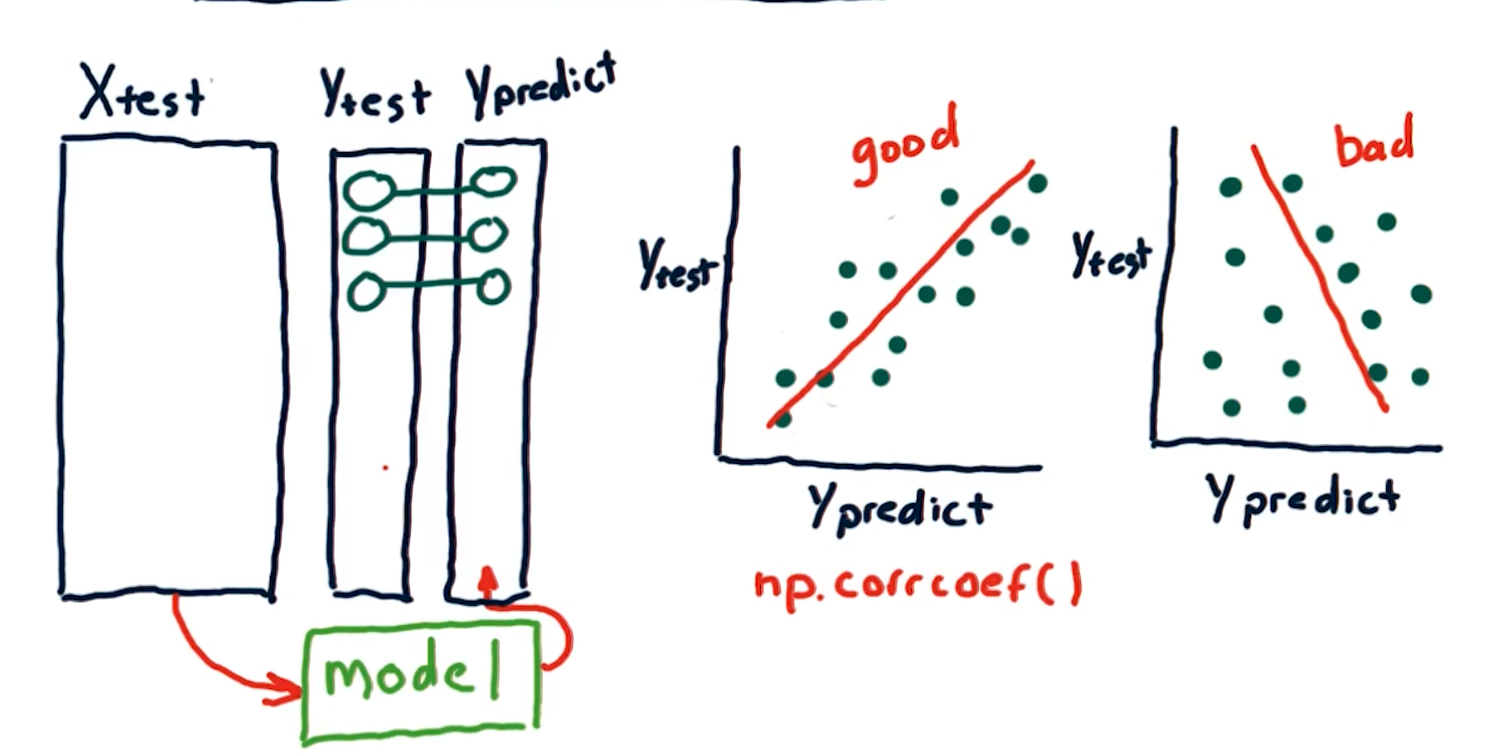 Xtest
Ytest
Ypredict
model
good
Ytest
Ypredict
np.corrcoef()
bad
Ytest
Ypredict